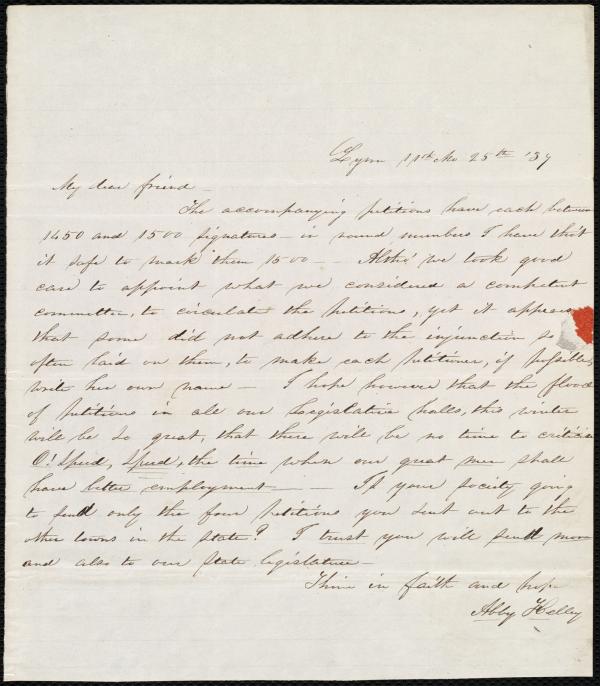 Lynn 11th Mo 25th '37
My dear friend -
The accompanying petitions have each between
1450 and 1500 signatures - in round numbers I have tho't
it safe to mark them 1500 - Altho' we took good
care to appoint what we considered a competent
committee, to circulate the petitions, yet it appears
that some did not adhere to the injunction so
often laid on them, to make each petitioner, if possible,
write her own name - I hope however that the flood
of petitions in all our Legislative halls, this winter
will be so great, that there will be no time to criticise
O! Speed, speed, the time when our great men shall
have better employment - Is your society going
to send only the four petitions you sent out to the
other towns in the state? I trust you will send more
and also to our state legislature -
Thine in faith and hope
Abby Kelley